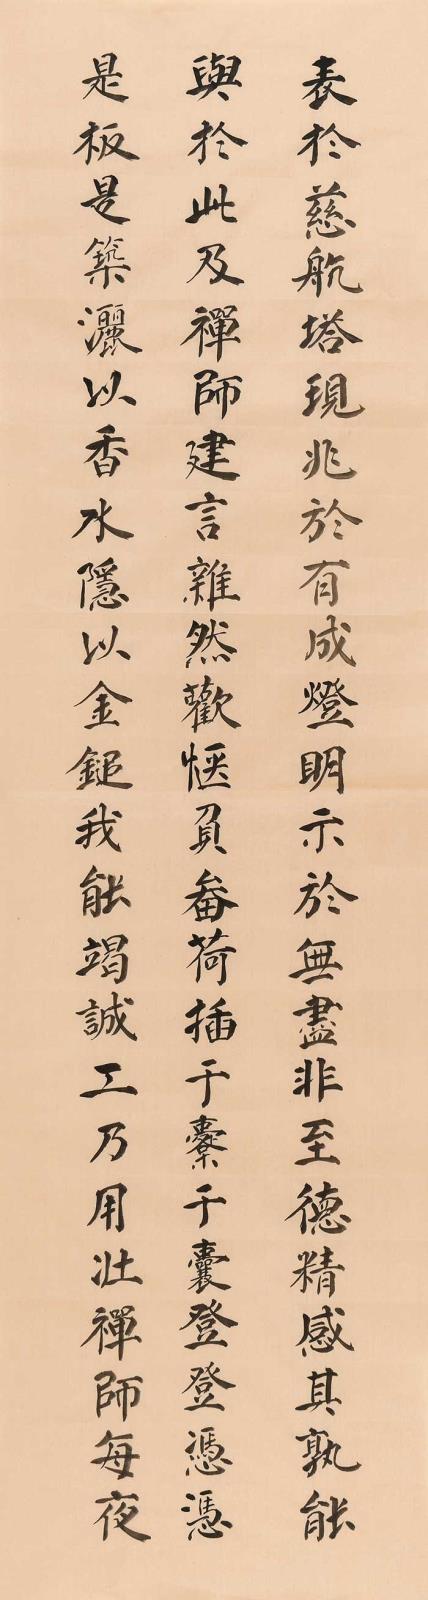 表於慈航塔現兆於有成燈明示於無盡非至德精感其孰能
與於此及禪師建言雜然歡愜負畚荷插于橐于囊登登憑憑
是板是築灑以香水隱以金鎚我能竭誠工乃用壯禪師每夜